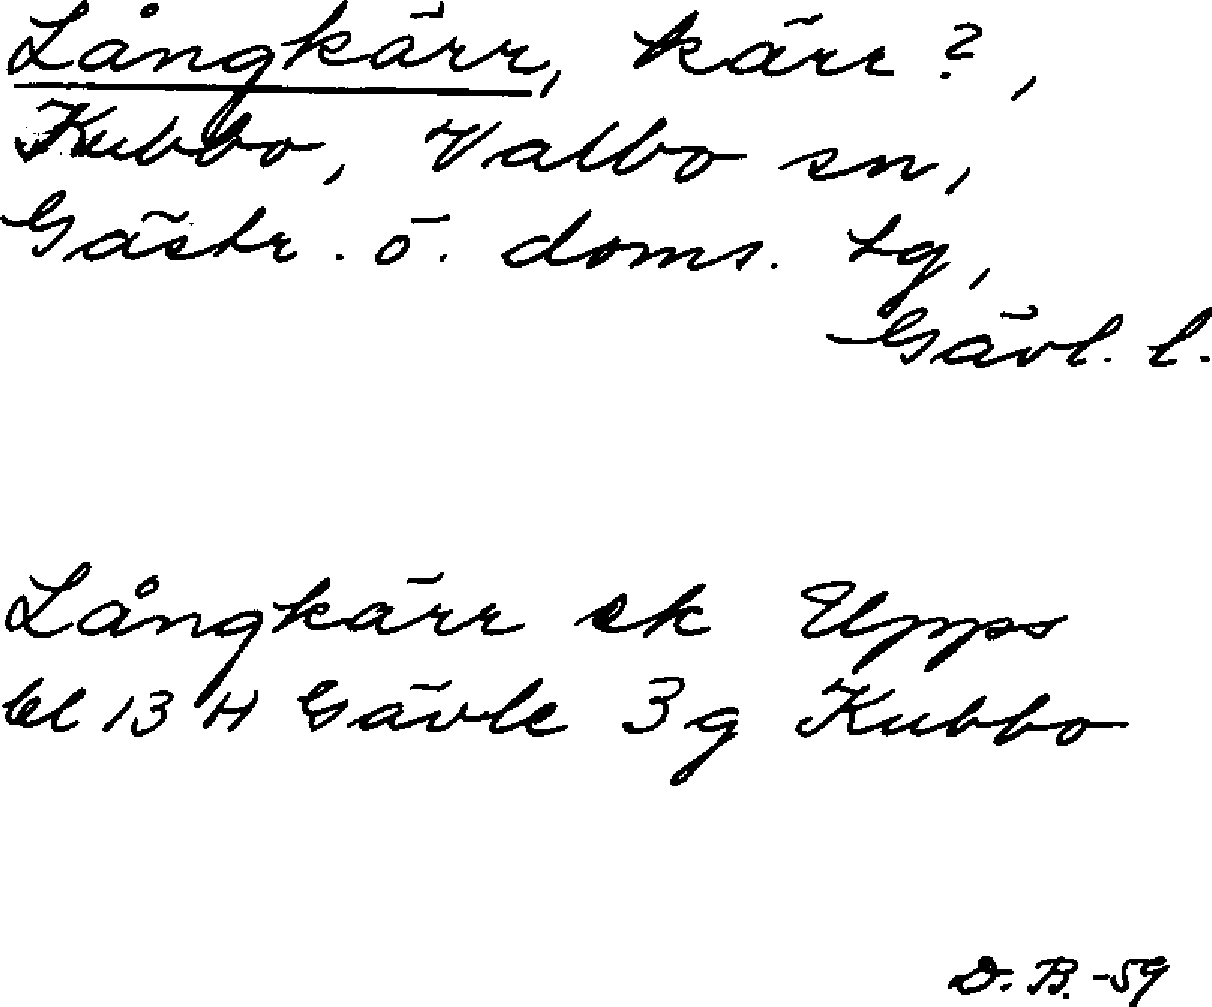 Långkärr, kärr?,
Kubbo, Valbo sn,
Gästr. ö. doms. tg,
Gävl. l.
Långkärr ek Upps
bl 13 H Gävle 3g Kubbo
D. B. -59